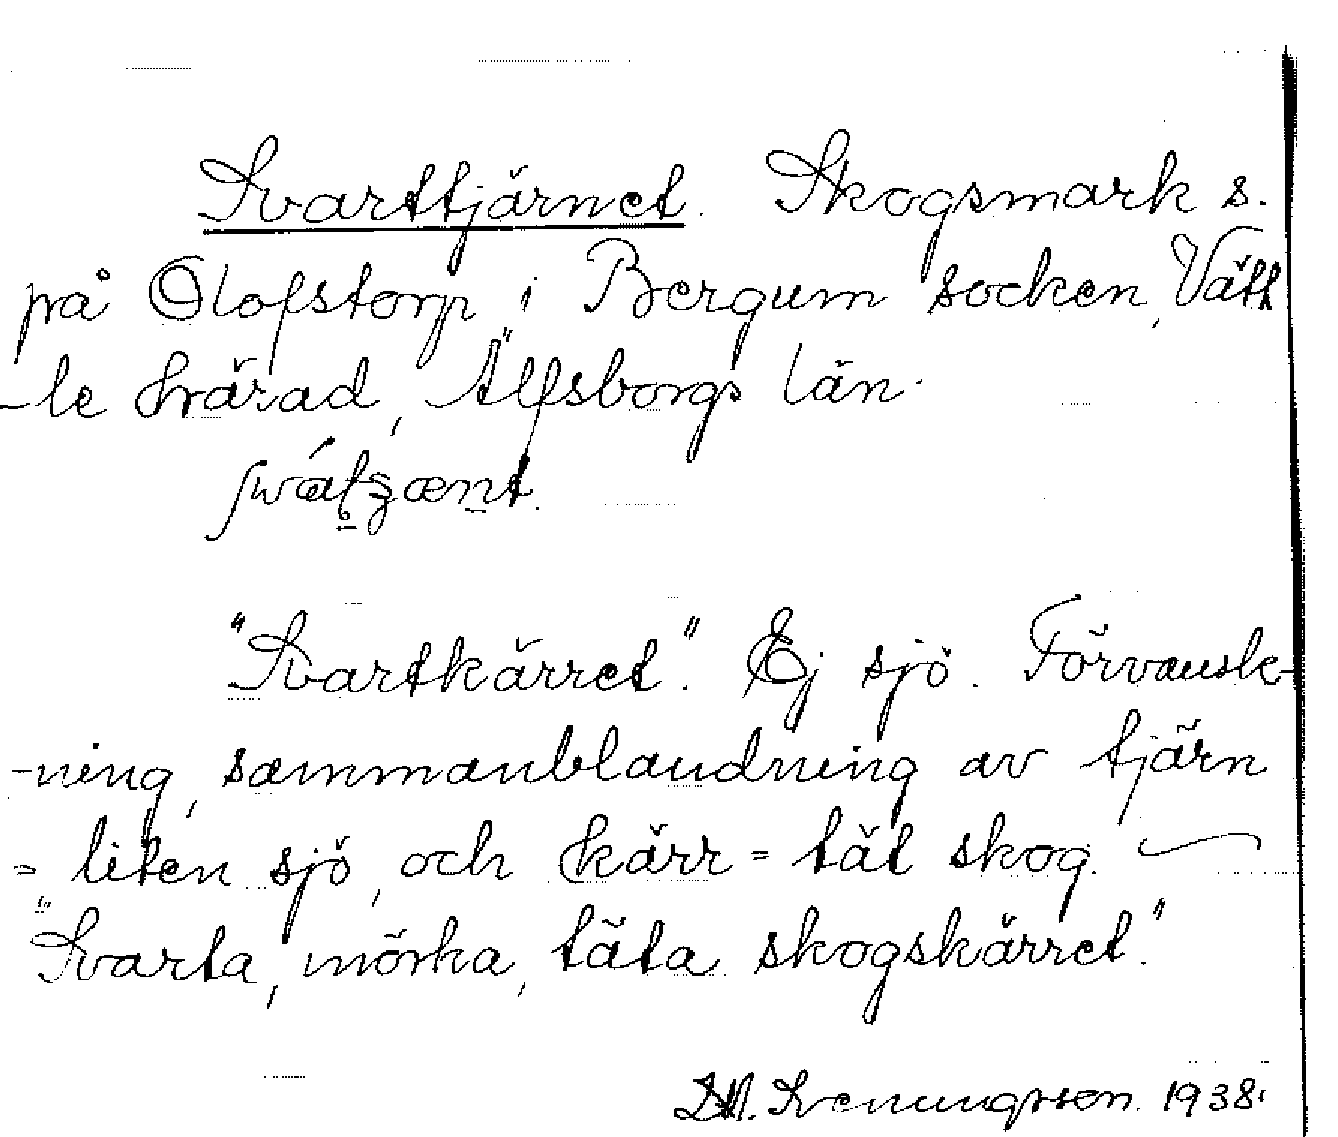 Svarttjärnet. Skogsmark s.
på Olofstorp i Bergum socken, Vätt
-le härad, Älfsborgs län.
"Svartkärret". Ej sjö. Förvansk-
-ning, sammanblandning av tjärn
= liten sjö, och kärr = tät skog. —
"Svarta, mörka, täta skogskärret."
Svenungsson. 1938.